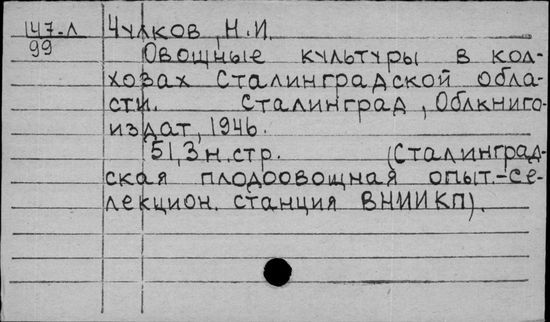 147-Л Чулков, Н.И.
99
Овощные культуры в кол-
хозах Сталинградской обла-
сти. Сталинград, Облкниго-
издат, 1946.
51,3 н.стр. (Сталинград-
ская плодоовощная опыт.-се-
лекцион. станция ВНИИКП).